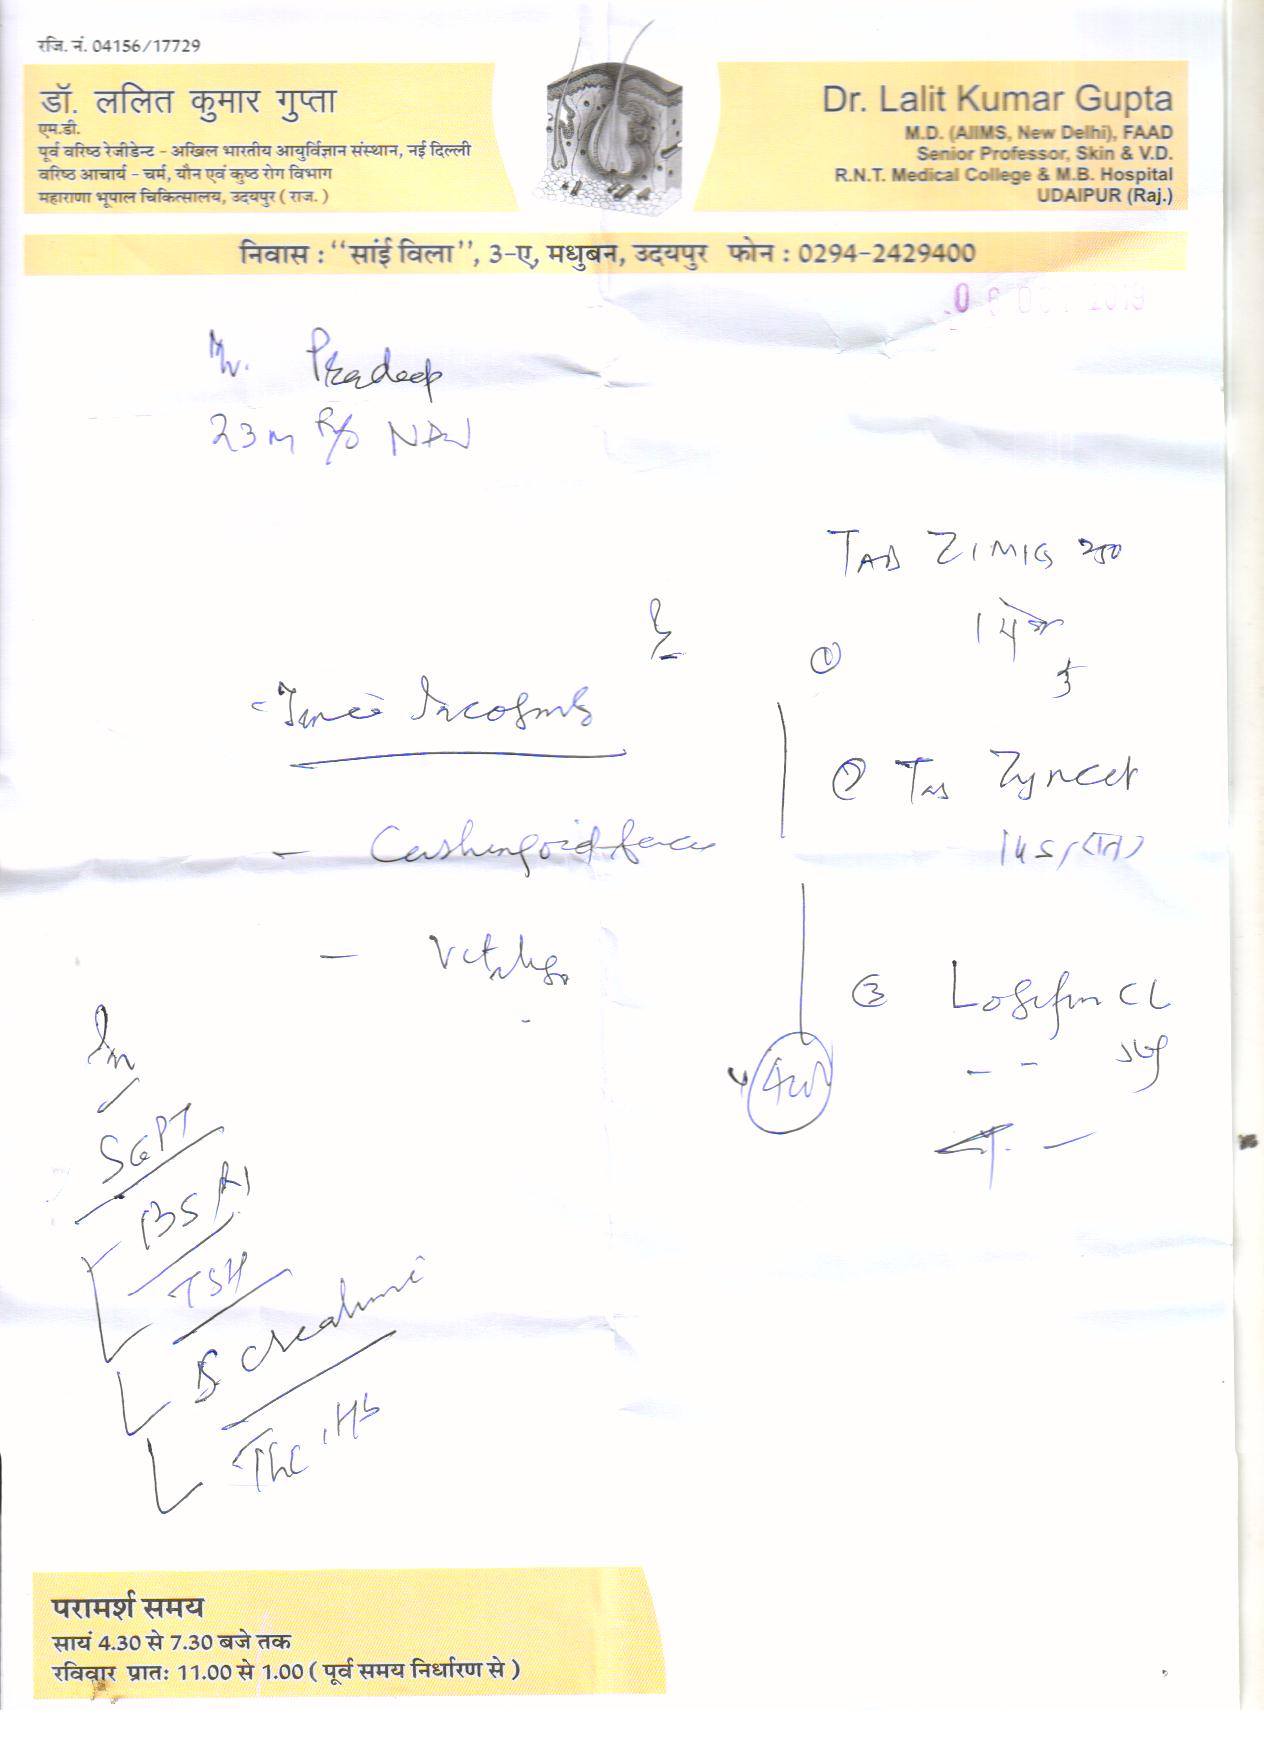 रजि. नं. 04156/17729
डॉ. ललित कुमार गुप्ता
एम.डी.
पूर्व वरिष्ठ रेजीडेन्ट - अखिल भारतीय आयुर्विज्ञान संस्थान, नई दिल्ली
वरिष्ठ आचार्य - चर्म, यौन एवं कुष्ठ रोग विभाग
महाराणा भूपाल चिकित्सालय, उदयपुर ( राज. )
Dr. Lalit Kumar Gupta
M.D. (AIIMS, New Delhi), FAAD
Senior Professor, Skin & V.D.
R.N.T. Medical College & M.B. Hospital
UDAIPUR (Raj.)
निवास : ‘‘सांई विला’’, 3-ए, मधुबन, उदयपुर फोन : 0294-2429400
06 OCT 2019
Mr. Pradeep
23 m R/o
TAB ZIMIG 250
①
- Tinea Incognito
② Tab Zyncet
- Cushingoid face
- Vitiligo
③ CL
SGPT
BSR
TSH
S creatinine
परामर्श समय
सायं 4.30 से 7.30 बजे तक
रविवार प्रातः 11.00 से 1.00 ( पूर्व समय निर्धारण से )